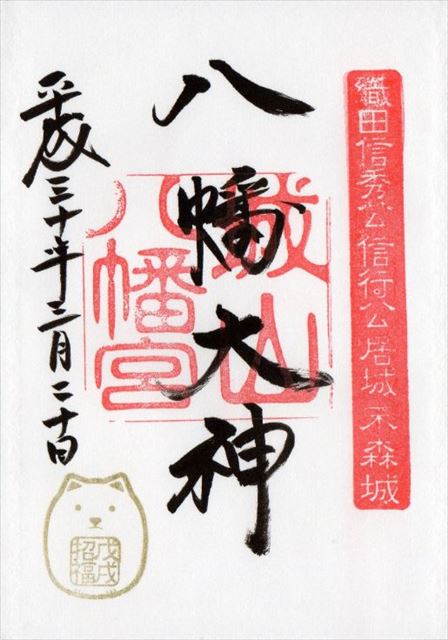 織田信秀公信行公居城末森城
八幡大神
城山
八幡宮
平成三十年三月二十日
戊戌
招福